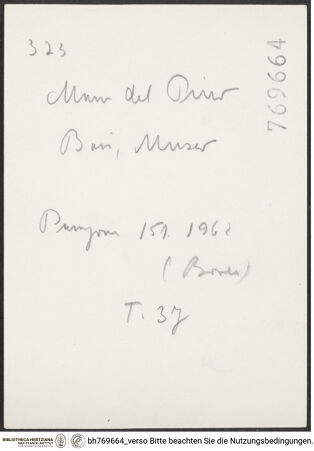 323
769664
del Pino
Bari, Museo
Paragone 151. 1962
(Bovea)
T. 37
BIBLIOTHECA HERTZIANA
MAX-PLANCK-INSTITUT
FÜR KUNSTGESCHICHTE
bh769664_verso Bitte beachten Sie die Nutzungsbedingungen.